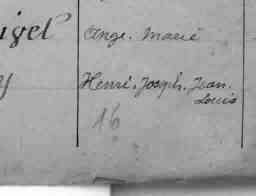 Ange. Marie
Henri. Joseph. Jean.
Louis
16